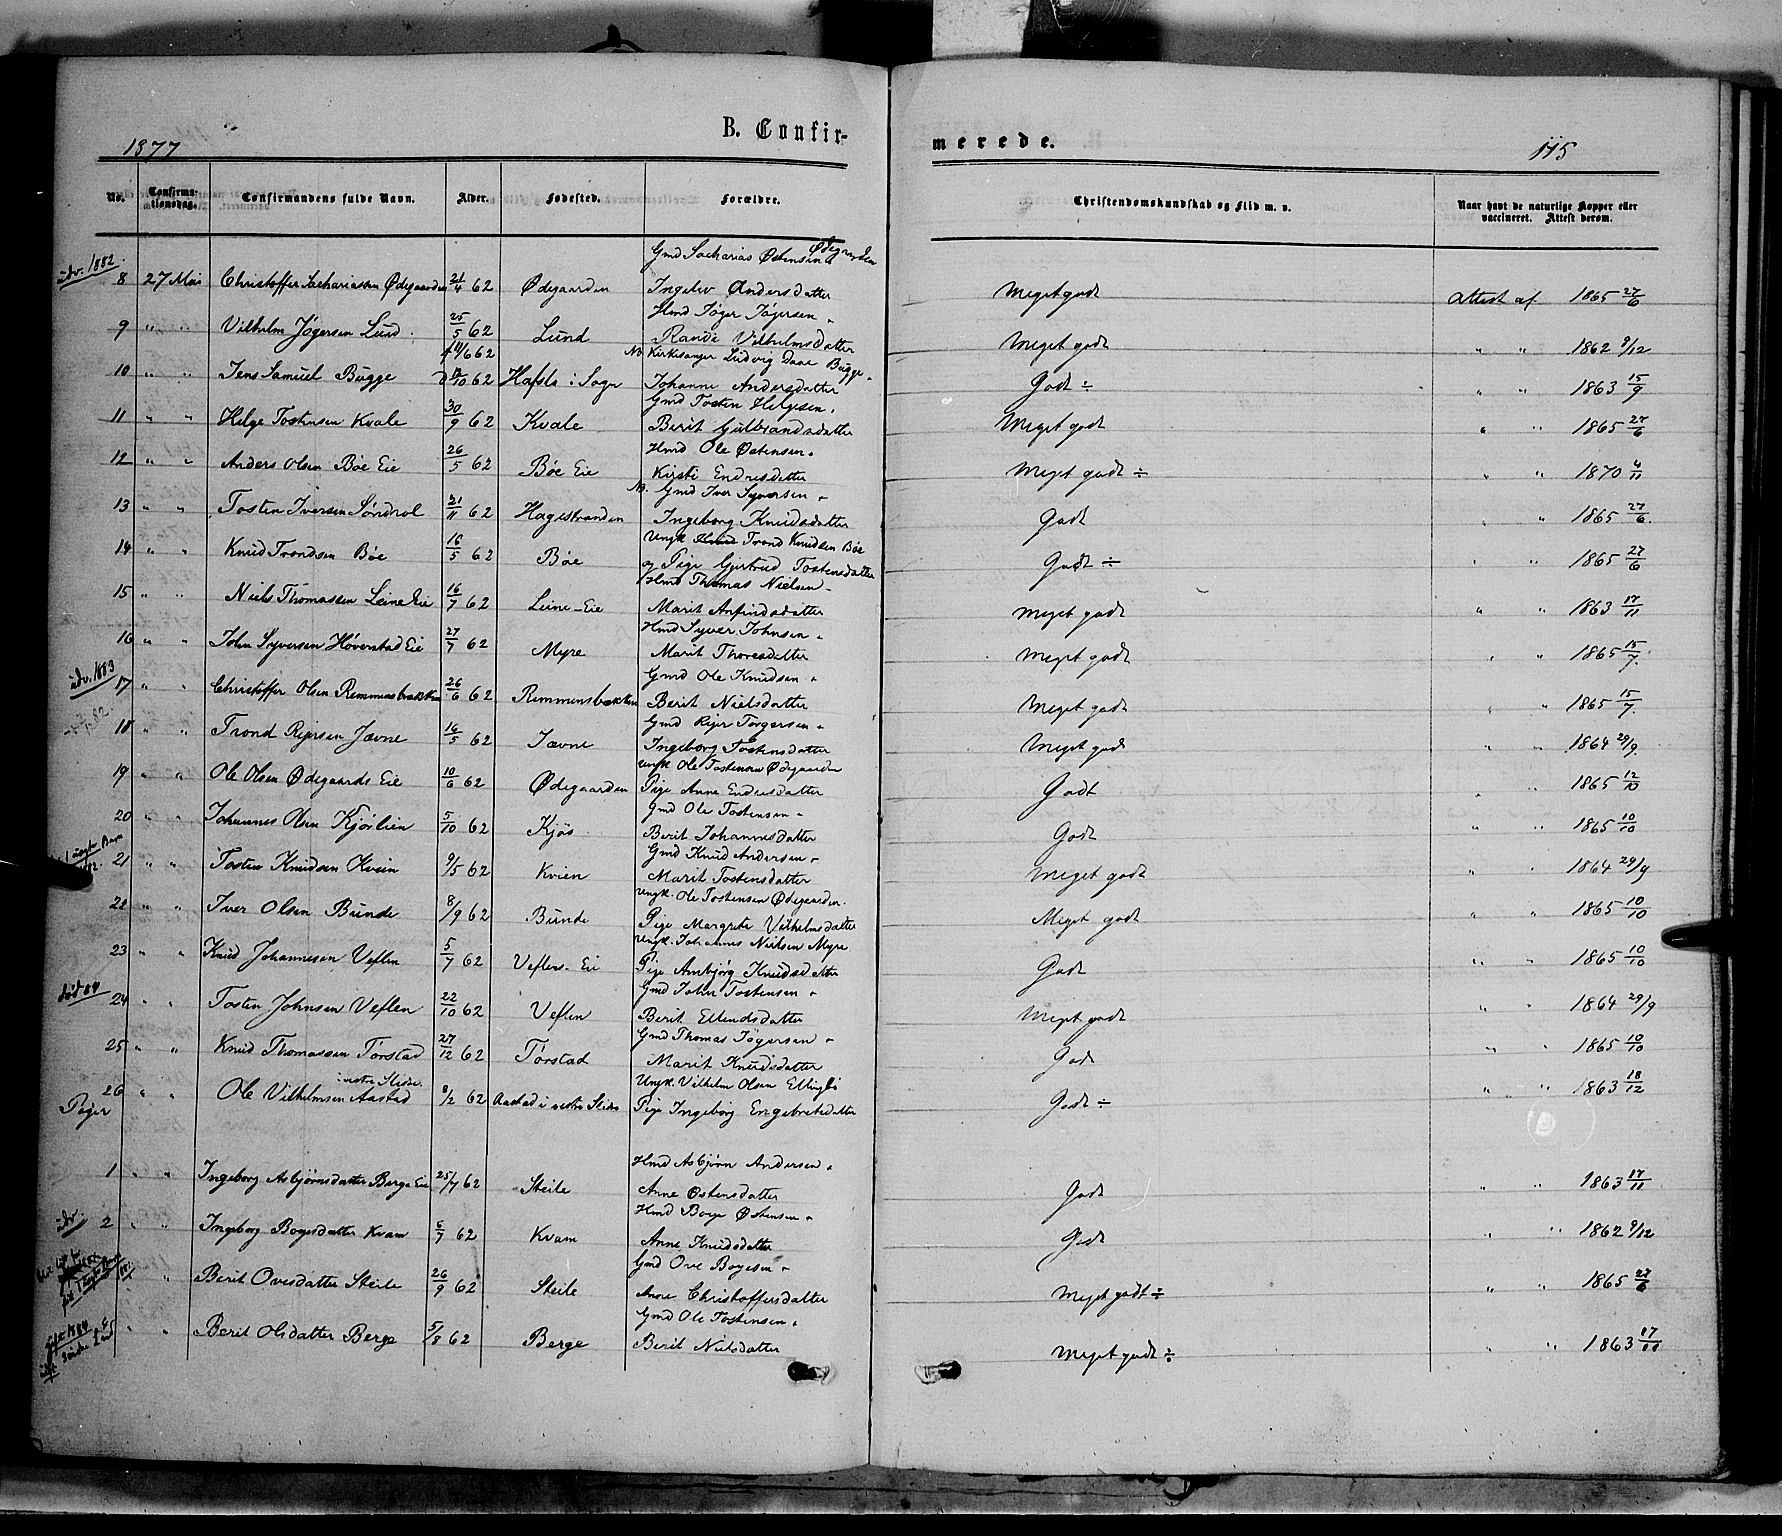 1877
B. Confir-
merede.
115
No.
Confirma-
tionsdag.
Confirmandens fulde Navn.
Alder.
Fødested.
Forældre.
Christendomskundskab og Flid m. v.
Naar havt de naturlige Kopper eller
vaccineret. Attest derom.
udv. 1882.
Gmd Sacharias Østensen Ødegaarden
8 27 Mai Christoffer Sachariassen Ødegaarden 21/4 62 Ødegaarden Ingelev Andersdatter Meget godt Attest af 1865 27/6
Hmd Jøger Jøgersen
9 " " Vilhelm Jøgersen Lund 25/5 62 Lund Randi Vilhelmsdatter Meget godt " " 1862 9/12
62 NB Kirkesanger Ludvig Daae Bugge
10 " " Jens Samuel Bugge 62 Hafslo i Sogn Johanne Andersdatter Godt ÷ " " 1863 15/9
Gmd Tosten Helgesen
11 " " Helge Tostensen Kvale 30/9 62 Kvale Berit Gulbrandsdatter Meget godt " " 1865 27/6
Hmd Ole Østensen
12 " " Anders Olsen Bøe Eie 26/5 62 Bøe Eie Kirsti Endresdatter Meget godt ÷ " " 1870 4/11
NB. Gmd Iver Syversen
13 " " Tosten Iversen Søndrol 21/11 62 Hagestranden Ingeborg Knudsdatter Godt " " 1865 27/6.
Ungk Trond Knudsen Bøe
14 " " Knud Trondsen Bøe 16/5 62 Bøe og Pige Gjertrud Tostensdatter Godt ÷ " " 1865 27/6
Hmd Thomas Nielsen
15 " " Niels Thomassen Leine Eie 16/7 62 Leine-Eie Marit Arfindsdatter Meget godt " " 1863 17/11
Hmd Syver Johnsen
16 " " John Syversen Høverstad Eie 27/7 62 Myre Marit Thoresdatter Meget godt " " 1865 15/7.
udv. 1883
Gmd Ole Knudsen
17 " " Christoffer Olsen Remmensbakken 26/6 62 Remmensbakken Berit Nielsdatter Meget godt " " 1865 15/7.
82.
Gmd Rejer Torgersen
18 " " Trond Rejersen Jævne 16/5 62 Jævne Ingeborg Tostensdatter Meget godt " " 1864 29/9.
Ungk Ole Tostensen Ødegaarden
19 " " Ole Olsen Ødegaards Eie 10/6 62 Ødegaarden Pige Anne Endresdatter Godt " " 1865 12/10
Gmd Ole Tostensen
20 " " Johannes Olsen Kjørlien 5/10 62 Kjøs Berit Johannesdatter Godt " " 1865 10/10
Gmd Knud Andersen
21 " " Tosten Knudsen Kvien 9/5 62 Kvien Marit Tostensdatter Meget godt " " 1864 29/9
Ungk. Ole Tostensen Ødegaarden.
22 " " Iver Olsen Bunde 8/9 62 Bunde Pige Margrete Vilhelmsdatter Meget godt " " 1865 10/10
Ungk. Johannes Nielsen Myre
23 " " Knud Johannesen Veflen 5/7 62 Veflens-Ei Pige Ambjørg Knudsdatter Godt " " 1865 10/10
død 84
Gmd John Tostensen
24 " " Tosten Johnsen Veflen 22/10 62 Veflen Berit Ellendsdatter Meget godt " " 1864 29/9
Gmd Thomas Jøgersen
25 " " Knud Thomassen Tørstad 27/12 62 Tørstad Marit Knudsdatter Godt " " 1865 10/10
i vestre Slidre. Ungk. Vilhelm Olsen Ellingbø
26 " " Ole Vilhelmsen Aastad 8/2 62 Aastad i vestre Slidre Pige Ingeborg Engebretsdatter Godt ÷ " " 1863 18/12
Piger
Hmd Asbjørn Andersen
1 " " Ingeborg Asbjørnsdatter Berge Eie 25/7 62 Steile Anne Østensdatter Godt " " 1863 17/11
udv.
Hmd Boye Østensen
2 " " Ingeborg Boyesdatter Kvam 6/7 62 Kvam Anne Knudsdatter Godt " " 1862 9/12
Gmd Ove Boyesen
" " Berit Ovesdatter Steile 26/9 62 Steile Anne Christoffersdatter Meget godt ÷ " " 1865 27/6
gift 1884
søndre Land
Gmd Ole Tostensen
" " Berit Olsdatter Berge 5/8 62 Berge Berit Nielsdatter Meget godt ÷ " " 1863 17/11